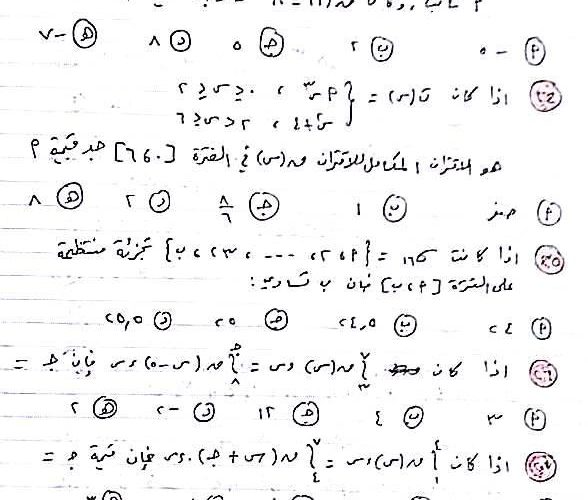 أ) -٥ ب) ٢ ج) ٥ د) ٨ هـ) -٧
٢٤) اذا كان ت(س) = { أس٣ ، ٠ ≤ س ≤ ٢
س٢ + ٤ ، ٢ < س ≤ ٦
هو الاقتران المكامل للاقتران ق(س) في الفترة [٠،٦] جد قيمة أ
أ) صفر ب) ١ ج) ٨/٦ د) ٢ هـ) ٨
٢٥) اذا كانت = {أ، ٢، ٣، ...، ب} تجزئة منتظمة
على الفترة [أ، ب] فإن ب تساوي:
أ) ٢٤ ب) ٢٤,٥ ج) ٢٥ د) ٢٥,٥
٢٦) اذا كان ∫٣^٧ ق(س) دس = ∫٨^جـ ق(س-٥) دس فإن جـ =
أ) ٣ ب) ٤ ج) ١٢ د) -٢ هـ) ٢
٢٧) اذا كان ∫١^٤ ق(س) دس = ∫٤^٧ ق(س + جـ) دس فإن قيمة جـ =